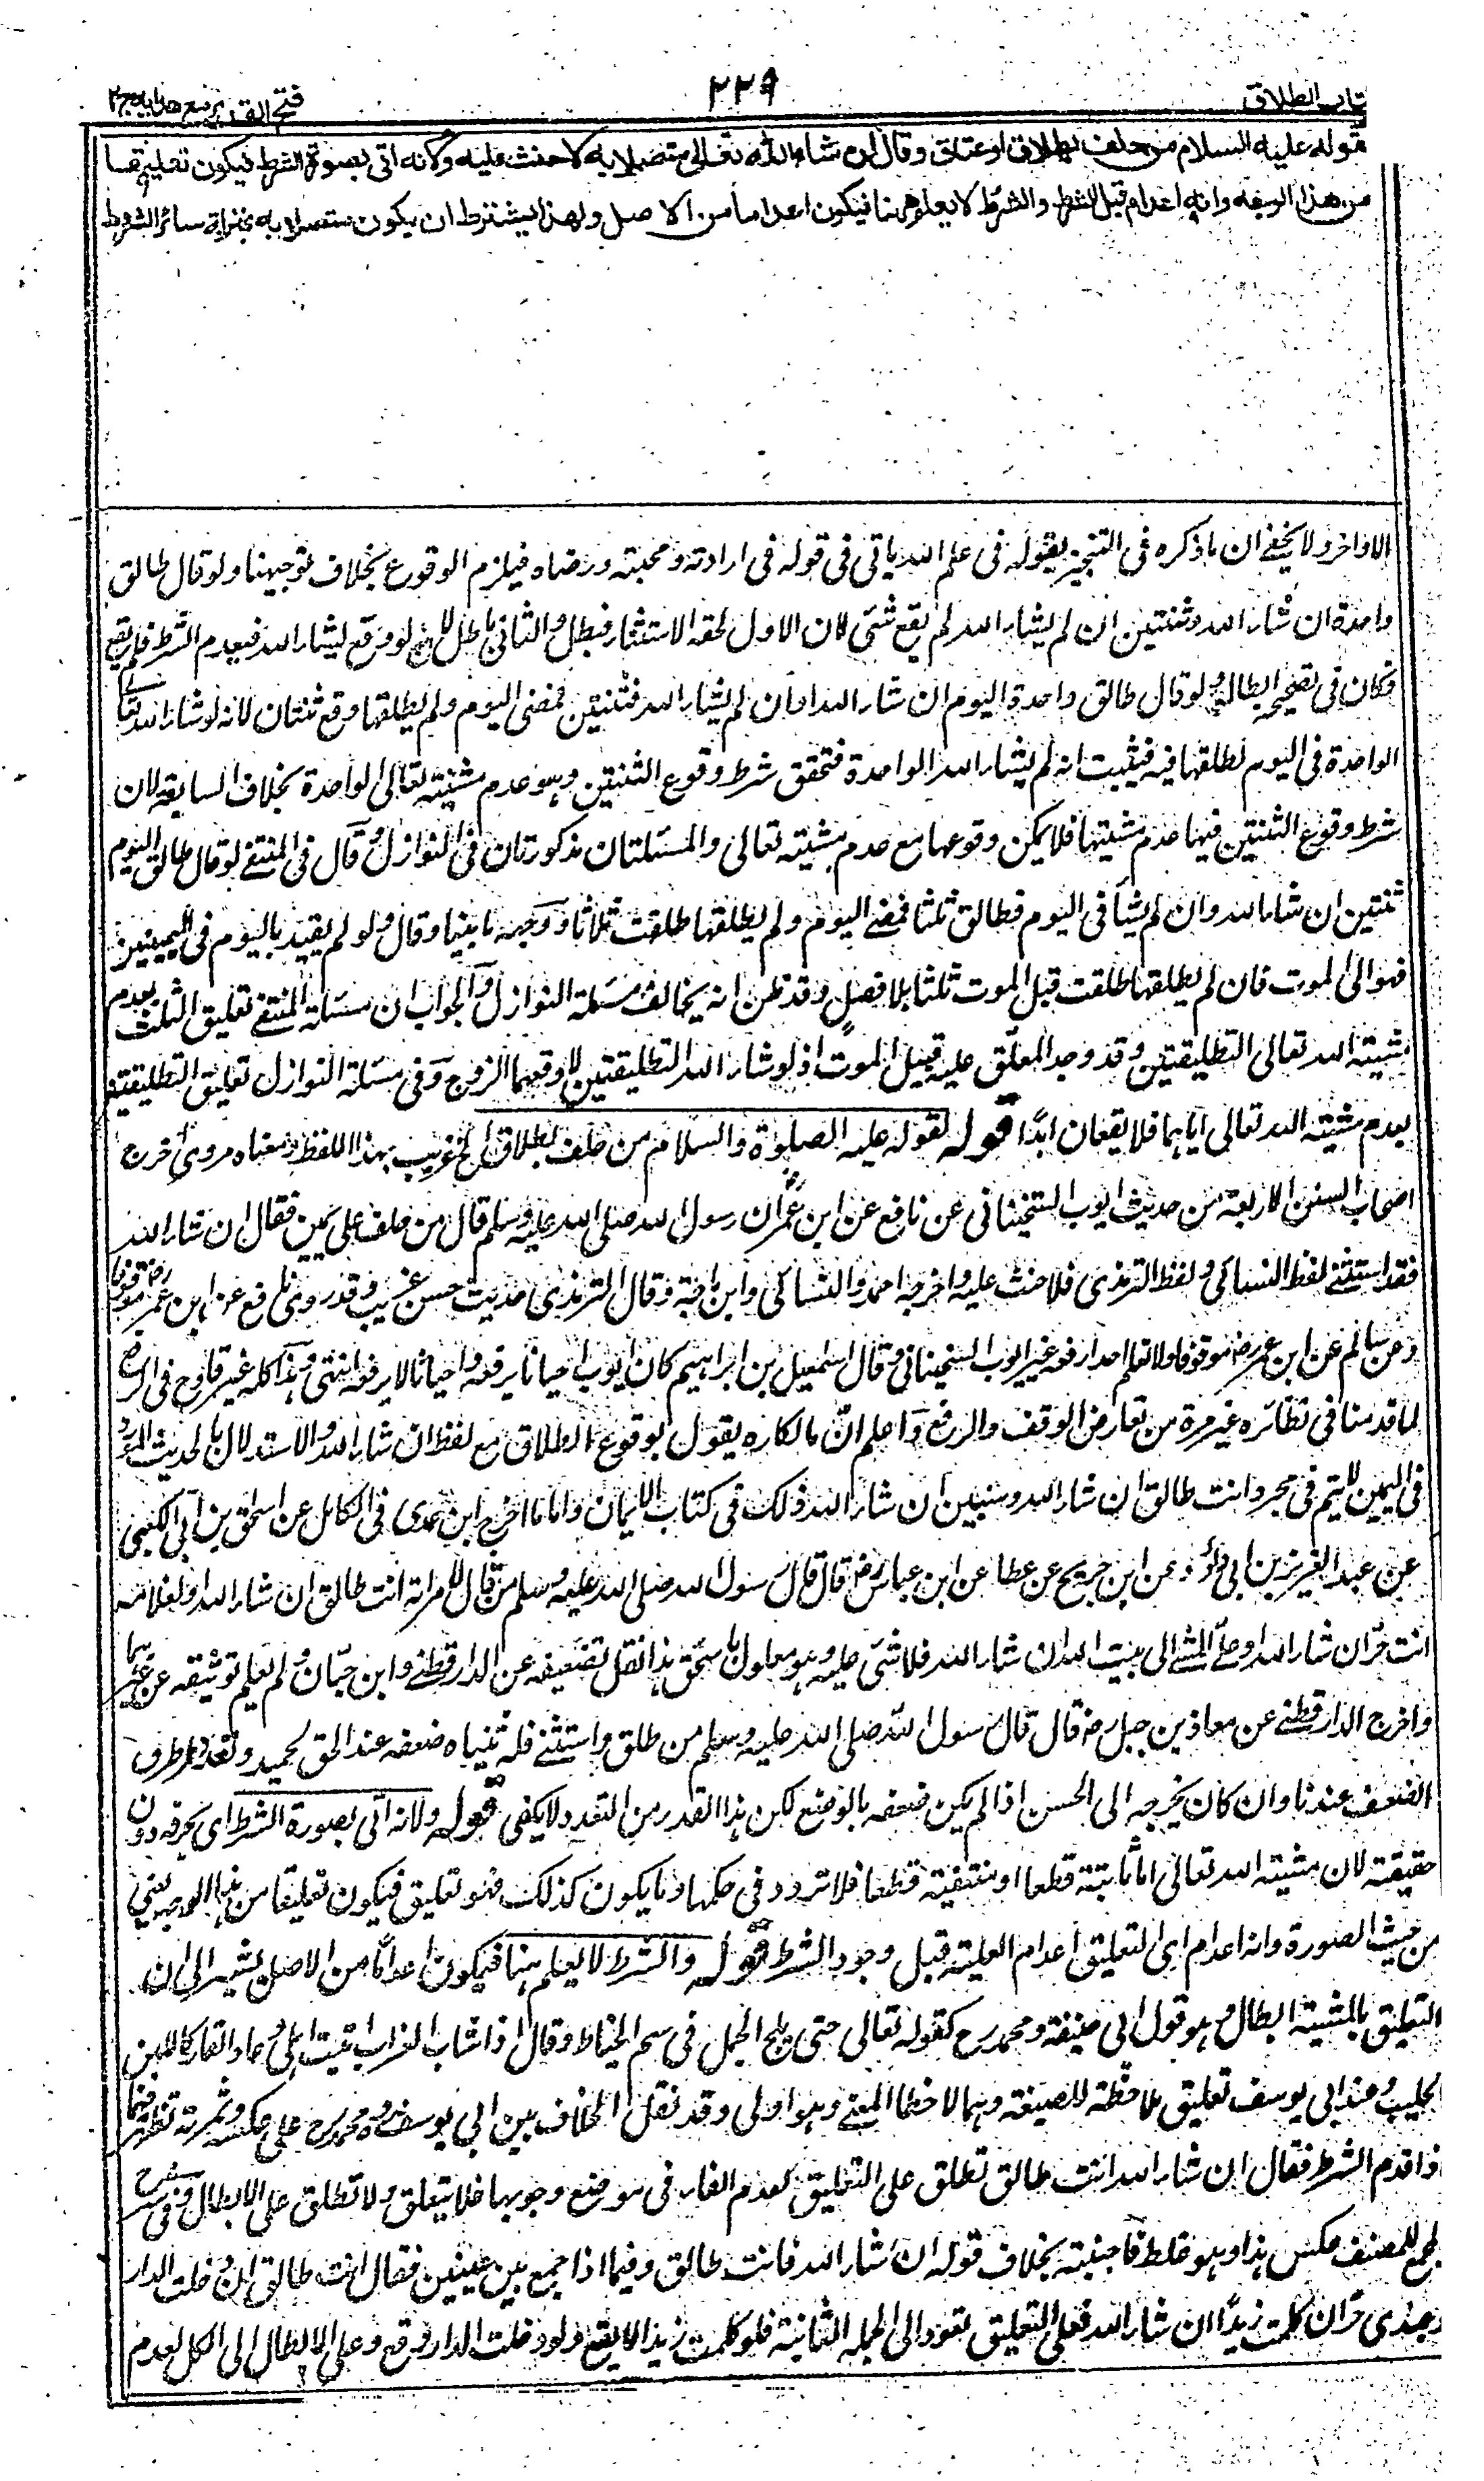 كتاب الطلاق
٢٢٩
فتح القدير مع هدايه ج ٢
قوله عليه السلام من حلف بطلاق او عتاق وقال ان شاء الله تعالى متصلا به لاحنث عليه ولانه اتى بصورة الشرط فيكون تعليقا
من هذا الوجه وانه اعدام قبل الشرط والشرط لا يعلم ههنا فيكون اعداما من الاصل ولهذا يشترط ان يكون متصلا به بمنزلة سائر الشروط
الاواخر ولا يخفى ان ما ذكره فى التنجيز بقوله فى علم الله ياتى فى قوله فى ارادته ومحبته ورضاه فيلزم الوقوع بخلاف توجيهنا ولو قال طالق
واحدة ان شاء الله وثنتين ان لم يشاء الله لم يقع شئ لان الاول لحقه الاستثناء فبطل والثانى باطل لانه لو وقع ليشاء الله فيعدم الشرط فلم يقع
فكان فى تصحيحه ابطاله ولو قال طالق واحدة اليوم ان شاء الله وان لم يشاء الله فثنتين فمضى اليوم ولم يطلقها وقع ثنتان لانه لو شاء الله تعالى
الواحدة فى اليوم لطلقها فيه فيثبت انه لم يشاء الله الواحدة فتحقق شرط وقوع الثنتين وهو عدم مشيته تعالى الواحدة بخلاف السابقة لان
شرط وقوع الثنتين فيها عدم مشيتها فلا يمكن وقوعها مع عدم مشيته تعالى والمسئلتان مذكورتان فى النوازل وقال فى المنتقى لو قال طالق اليوم
ثنتين ان شاء الله وان لم يشأ فى اليوم فطالق ثلثا فمضى اليوم ولم يطلقها طلقت ثلاثا ووجهه ما بينا وقال ولو لم يقيد باليوم فى اليمينين
فهو الى الموت فان لم يطلقها طلقت قبل الموت ثلثا بلا فصل وقد ظن انه يخالف مسئلة النوازل والجواب ان مسئلة المنتقى تعليق الثلث بعدم
مشيته الله تعالى التطليقتين وقد وجد المعلق عليه قبيل الموت اذ لو شاء الله التطليقتين لاوقعهما الزوج وفى مسئلة النوازل تعليق التطليقتين
بعدم مشيته الله تعالى اياهما فلا يقعان ابدًا قوله لقوله عليه الصلوة والسلام من حلف بطلاق الخ غريب بهذا اللفظ ومعناه مروى اخرج
اصحاب السنن الاربعة من حديث ايوب السختيانى عن نافع عن ابن عمر ان رسول الله صلى الله عليه وسلم قال من حلف على يمين فقال ان شاء الله
فقد استثنى لفظ النسائى ولفظ الترمذى فلا حنث عليه واخرجه احمد والنسائى وابن ماجة وقال الترمذى حديث حسن غريب وقد روى نافع عن ابن عمر رض موقوفا
وعن سالم عن ابن عمر رض موقوفا ولا نعلم احدا رفعه غير ايوب السختيانى وقال اسمعيل بن ابراهيم كان ايوب احيانا يرفعه واحيانا لا يرفعه انتهى وهذا كله غير قادح فى الرفع
لما قدمنا فى نظائره غير مرة من تعارض الوقف والرفع واعلم ان مالكا رح يقول بوقوع الطلاق مع لفظ ان شاء الله والاستدلال بالحديث المورد
فى اليمين لا يتم فى مجرد انت طالق ان شاء الله وسنبين ان شاء الله ذلك فى كتاب الايمان واما ما اخرج ابن عدى فى الكامل عن اسحق بن ابى الكعبى
عن عبد العزيز بن ابى داود عن ابن جريج عن عطا عن ابن عباس رض قال قال رسول الله صلى الله عليه وسلم من قال لامراته انت طالق ان شاء الله ولغلامه
انت حر ان شاء الله وعلى المشى الى بيت الله ان شاء الله فلا شئ عليه وهو معلول باسحق هذا نقل تضعيفه عن الدارقطنى وابن حبان ولم نعلم توثيقه عن غيرهما
واخرج الدارقطنى عن معاذ بن جبل رض قال قال رسول الله صلى الله عليه وسلم من طلق واستثنى فله ثنياه ضعفه عبد الحق بحميد وتعدد طرق
الضعيف عندنا وان كان يخرجه الى الحسن اذا لم يكن ضعفه بالوضع لكن هذا القدر من التعدد لا يكفى قوله ولانه اتى بصورة الشرط اى بحرفه دون
حقيقته لان مشيته الله تعالى اما ثابتة قطعا او منتفية قطعا فلا تردد فى حكمها وما يكون كذلك فهو تعليق فيكون تعليقا من هذا الوجه يعنى
من حيث الصورة وانه اعدام اى التعليق اعدام العلية قبل وجود الشرط قوله والشرط لا يعلم ههنا فيكون اعدامًا من الاصل يشير الى ان
التعليق بالمشية ابطال وهو قول ابى حنيفة ومحمد رح كقوله تعالى حتى يلج الجمل فى سم الخياط وقال اذا شاب الغراب اتيت اهلى وعاد القار كاللبن
الحليب وعند ابى يوسف تعليق ملاحظة للصيغة وهما لاحظا المعنى وهو اولى وقد نقل الخلاف بين ابى يوسف ومحمد رح على عكسه وثمرته تظهر فيما
اذا قدم الشرط فقال ان شاء الله انت طالق تطلق على التعليق لعدم الفاء فى موضع وجوبها فلا يتعلق ولا تطلق على الابطال وفى شرح
المجمع للمصنف عكس هذا وهو غلط فاجتنبه بخلاف قوله ان شاء الله فانت طالق وفيما اذا جمع بين يمينين فقال انت طالق ان دخلت الدار
وعبدى حر ان كلمت زيدًا ان شاء الله فعلى التعليق تعود الى الجملة الثانية فلو كلمت زيدا لا يقع ولو دخلت الدار وقع وعلى الابطال الى الكل لعدم